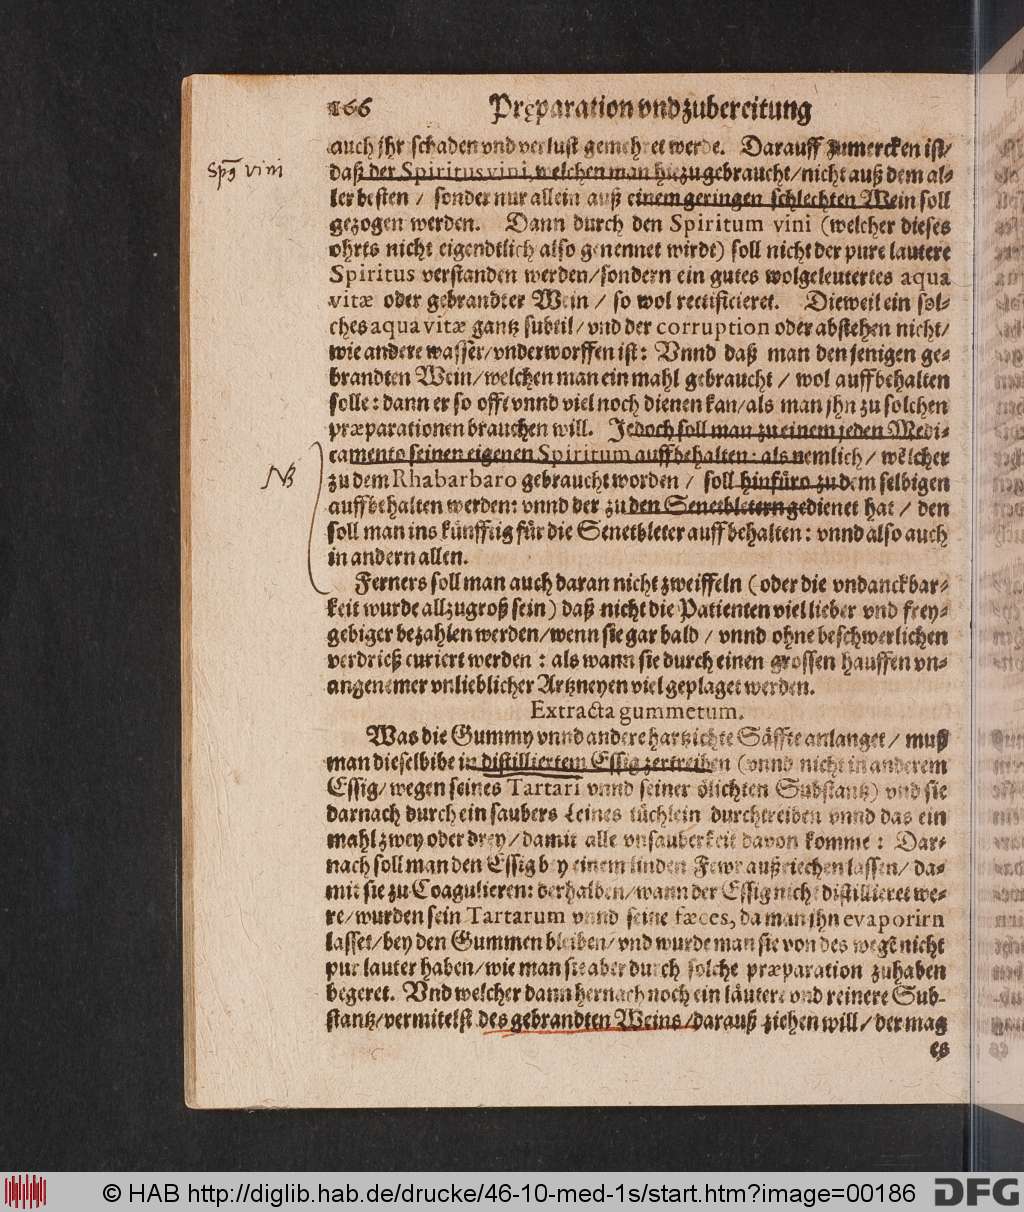 166 Pręparation vnd zubereitung
auch jhr schaden vnd verlust gemehret werde. Darauff zumercken ist/
Spũs vini
daß der Spiritus vini, welchen man hiezu gebraucht/ nicht auß dem al-
ler besten / sonder nur allein auß einem geringen schlechten Wein soll
gezogen werden. Dann durch den Spiritum vini (welcher dieses
ohrts nicht eigendtlich also genennet wirdt) soll nicht der pure lautere
Spiritus verstanden werden/ sondern ein gutes wolgeleutertes aqua
vitæ oder gebrandter Wein / so wol rectificieret. Dieweil ein sol-
ches aqua vitæ gantz subtil/ vnd der corruption oder abstehen nicht/
wie andere wasser/ vnderworffen ist: Vnnd daß man den jenigen ge-
brandten Wein/ welchen man ein mahl gebraucht / wol auffbehalten
solle: dann er so offt vnnd viel noch dienen kan/ als man jhn zu solchen
præparationen brauchen will. Jedoch soll man zu einem jeden Medi-
camento seinen eigenen Spiritum auffbehalten: als nemlich/ wĕlcher
NB
zu dem Rhabarbaro gebraucht worden / soll hinfüro zu dem selbigen
auffbehalten werden: vnnd der zu den Senetbletern gedienet hat / den
soll man ins künfftig für die Senetbleter auffbehalten: vnnd also auch
in andern allen.
Ferners soll man auch daran nicht zweiffeln (oder die vndanckbar-
keit wurde allzugroß sein) daß nicht die Patienten viel lieber vnd frey-
gebiger bezahlen werden/ wenn sie gar bald / vnnd ohne beschwerlichen
verdrieß curiert werden : als wann sie durch einen grossen hauffen vn-
angenemer vnlieblicher Artzneyen viel geplaget werden.
Extracta gummetum.
Was die Gummy vnnd andere hartzichte Säffte anlanget/ muß
man dieselbibe in distilliertem Essig zertreiben (vnnd nicht in anderem
Essig/ wegen seines Tartari vnnd seiner ölichten Substantz) vnd sie
darnach durch ein saubers leines tüchlein durchtreiben vnnd das ein
mahl zwey oder drey/ damit alle vnsauberkeit davon komme : Dar-
nach soll man den Essig bey einem linden Fewr außriechen lassen/ da-
mit sie zu Coagulieren: derhalben/ wann der Essig nicht distillieret we-
re/ wurden sein Tartarum vnnd seine fæces, da man jhn evaporirn
lasset/ bey den Gummen bleiben/ vnd wurde man sie von des wegẽ nicht
pur lauter haben/ wie man sie aber durch solche præparation zuhaben
begeret. Vnd welcher dann hernach noch ein läutere vnd reinere Sub-
stantz/ vermitelst des gebrandten Weins/ darauß ziehen will/ der mag
es
© HAB http://diglib.hab.de/drucke/46-10-med-1s/start.htm?image=00186 DFG